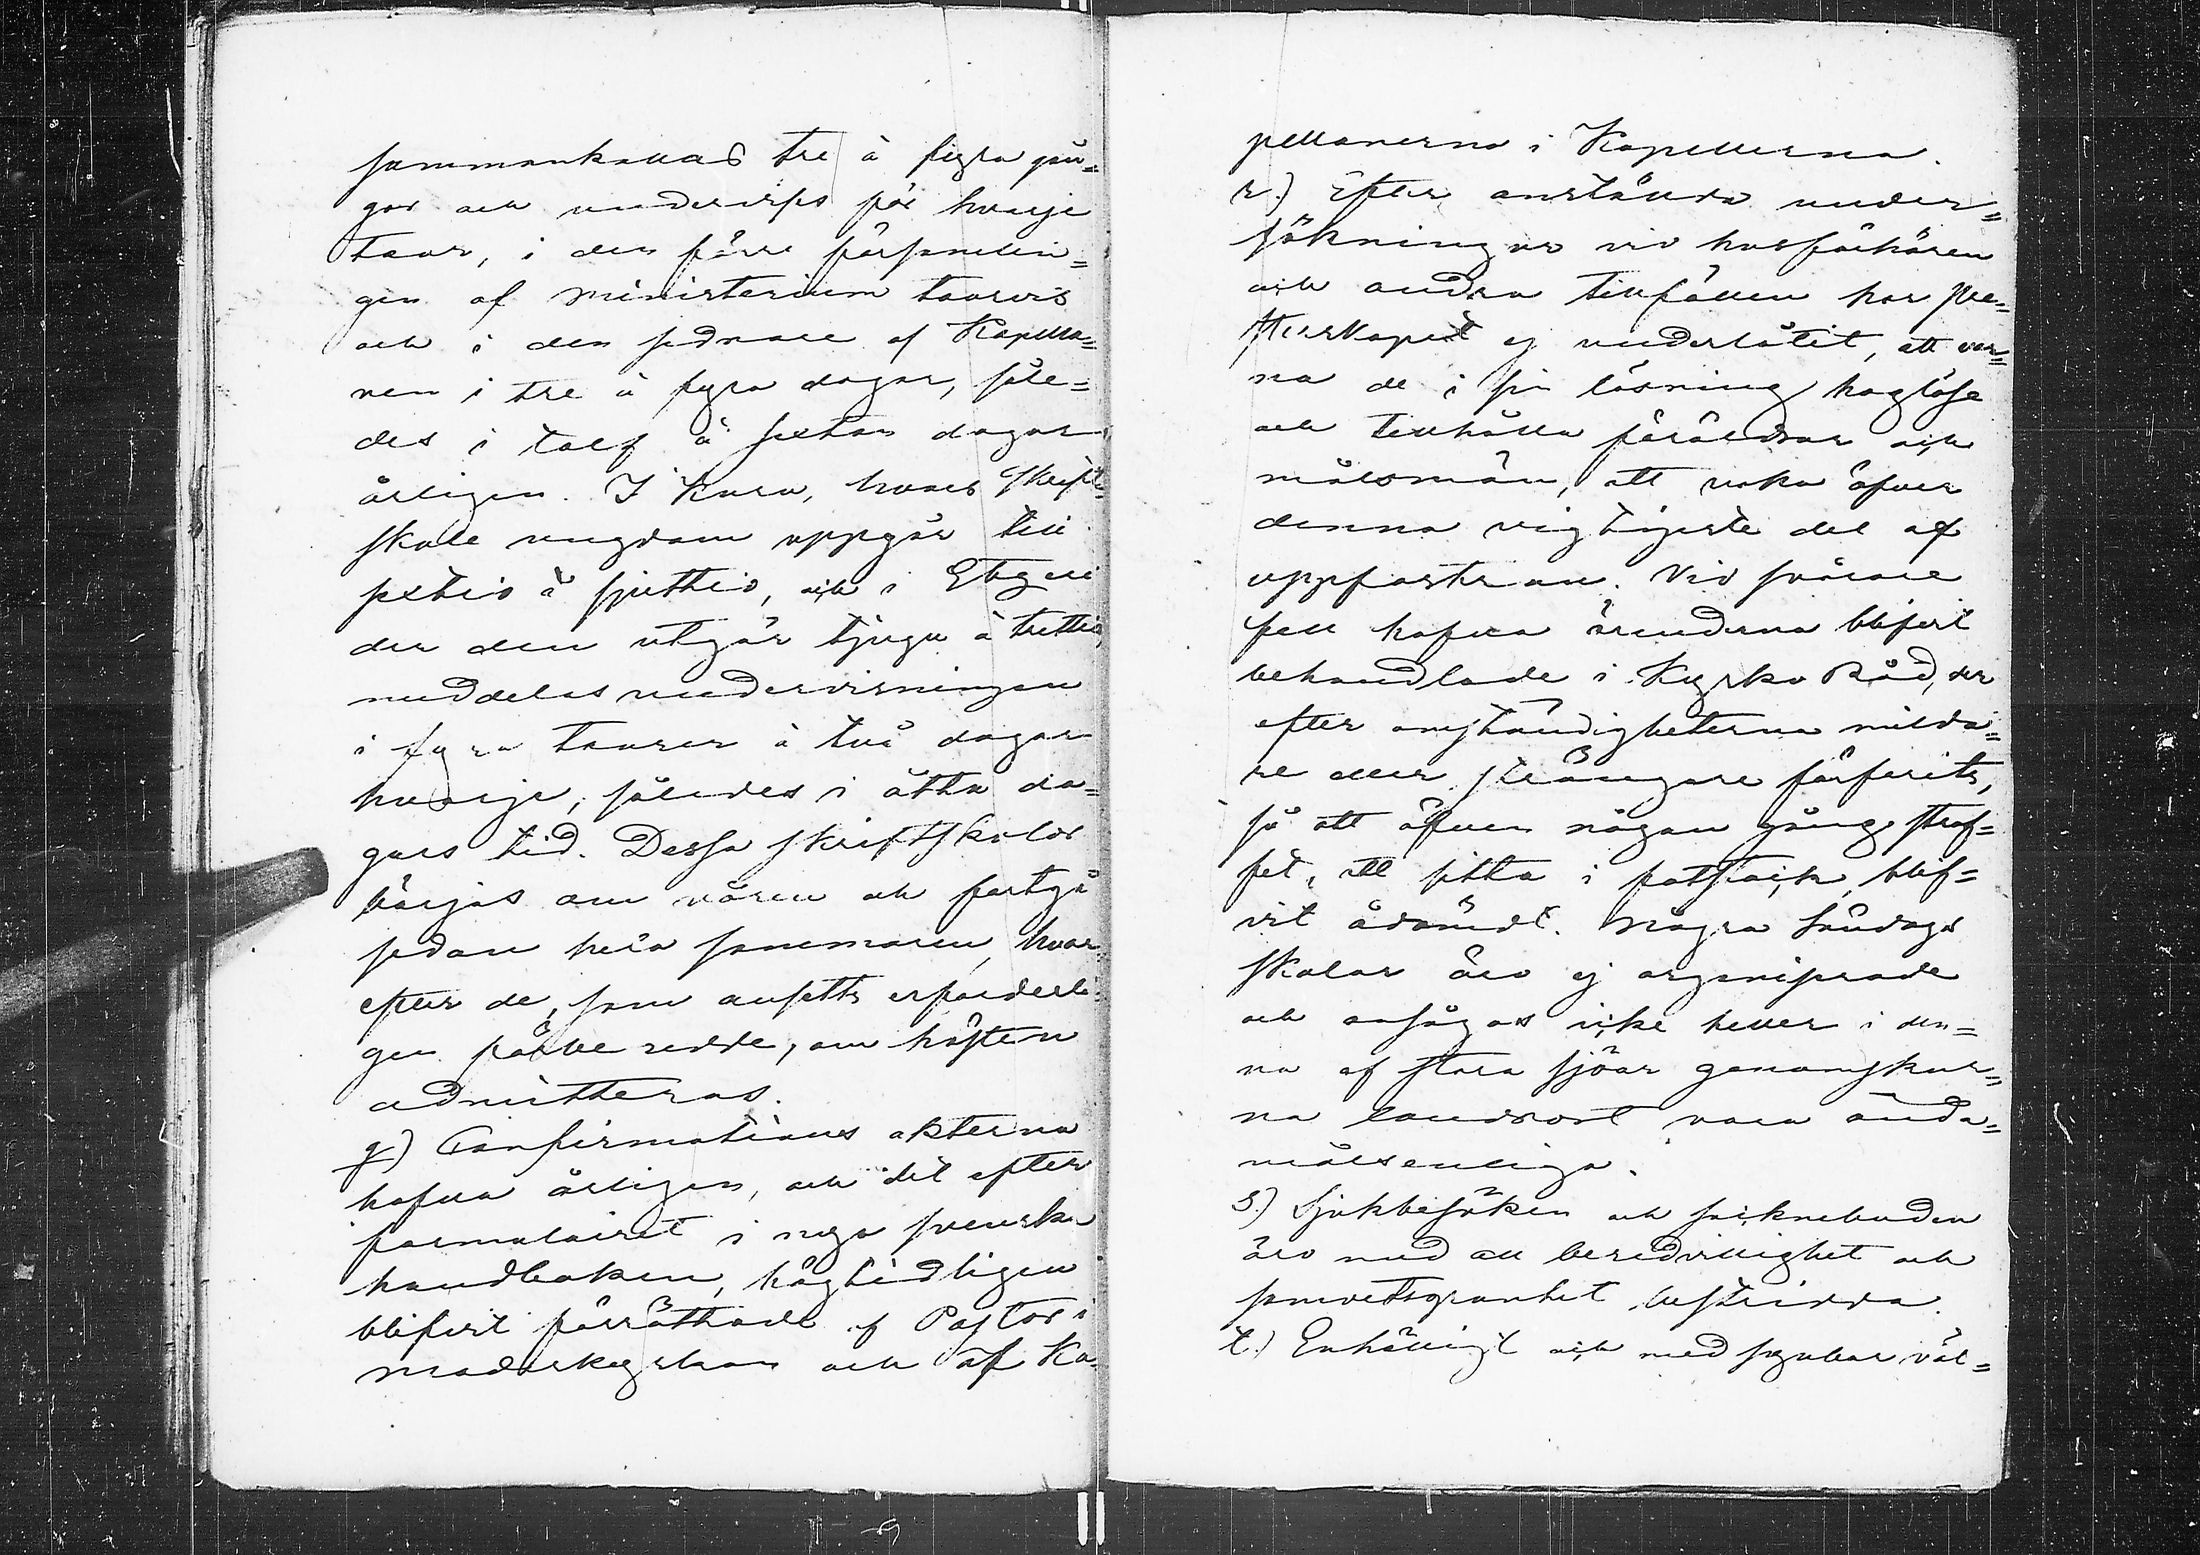 sammankallas tre à fyra gån=
gor och undervises för hvarje
tour, i den förre församlin=
gen af Ministerium tourvis
och i den sednare af Kapella=
nen i tre à fyra dagar, såle=
des i tolf à sexton dagar
årligen. I Kuru, hvars Skrift=
skole ungdom uppgår till
sextio à sjuttio, och i
der den utgör tjugu à trettio,
meddelas undervisningen
i fyra tourer à två dagar
hvarje, således i åtta da=
gars tid. Dessa Skriftskolor
börjas om våren och fortgå
sedan hela sommaren, hvar=
efter de, som ansetts erforderli=
gen förberedde, om hösten
admitteras.
q) Confirmations akterna
hafva årligen, och det efter
formulairet i nya svenska
handboken, högtidligen
blifvit förrättade af Pastor i
moderkyrkan och af Ka=
pellanerna i Kapellerna.
r.) Efter anstälda under=
sökningar vid husförhören
och andra tillfällen har Pre=
sterskapet ej underlåtit, att var=
na de i sin läsning håglöse
och tillhålla föräldrar och
målsmän, att vaka öfver
denna vigtigaste del af
uppfostran. Vid svårare
fall hafva ärenderna blifvit
behandlade i Kyrko Råd, der
efter omständigheterna milda=
re eller strängare förfarits,
så att äfven någon gång straf=
fet, att sitta i fotstock, blif=
vit ådömdt. Några Söndags
skolor äro ej organiserade
och ansågos icke heller i den=
na af stora sjöar genomskur=
na landsort vara ända=
målsenliga.
s.) Sjukbesöken och sockenbuden
äro med all beredvillighet och
samvetsgranhet bestridda.
t.) Enhälligt och med synbar väl=